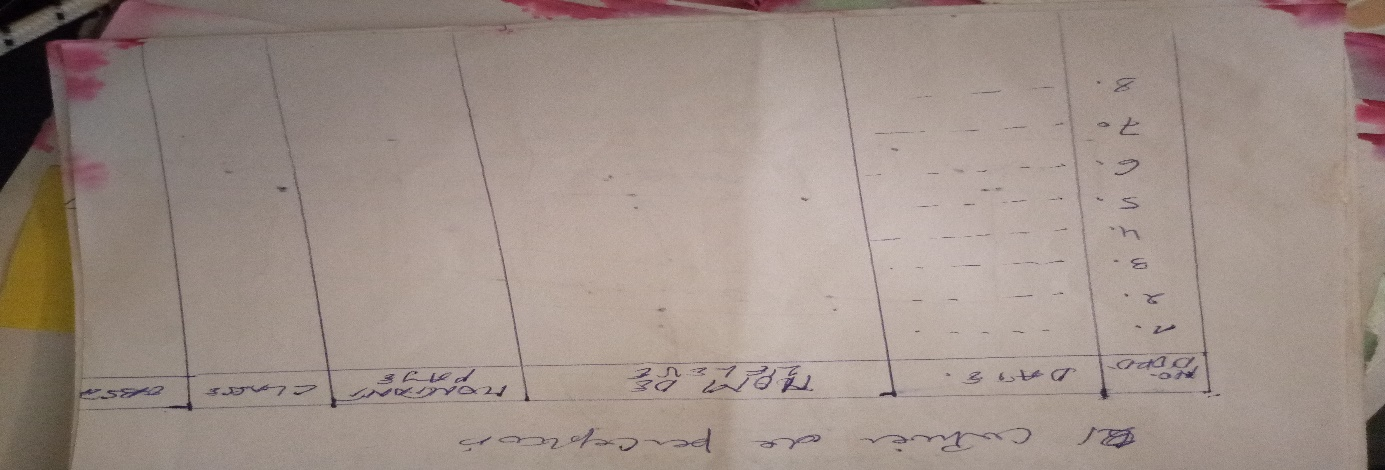 Cahier de perception
NO D'ORD DATE. NOM DE L'ELEVE MONTANT PAYE CLASSE OBS
1.
2.
3.
4.
5.
6.
7.
8.